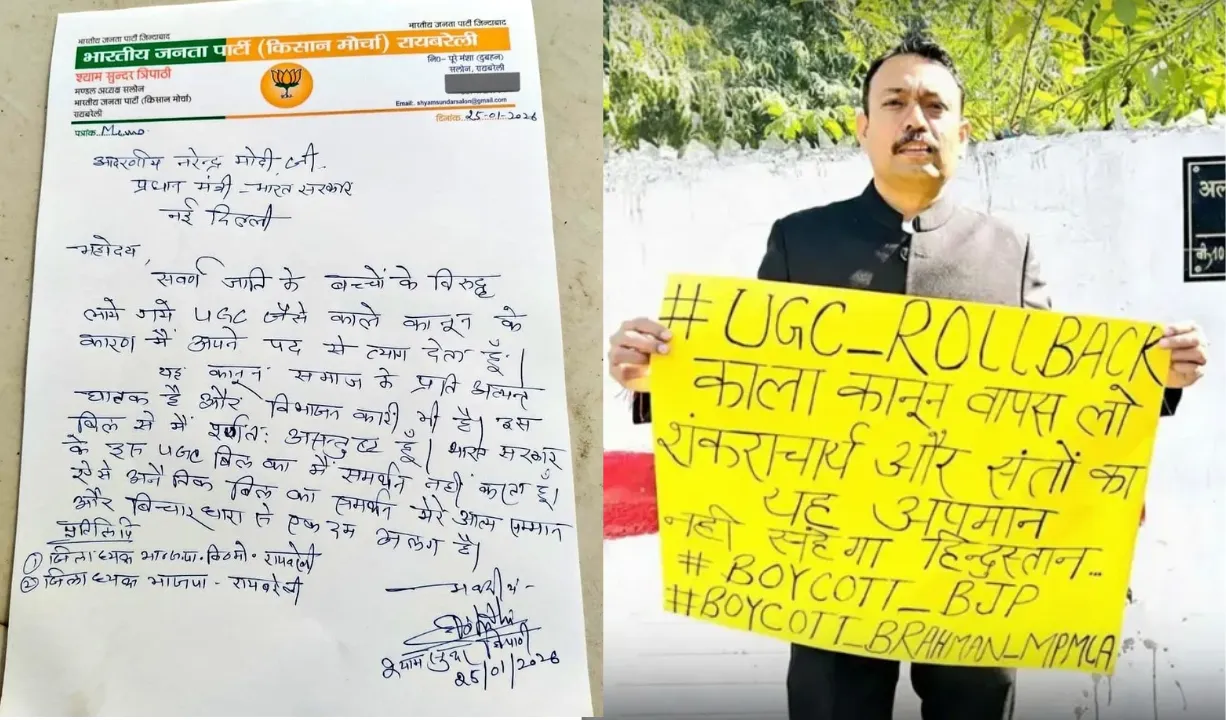 भारतीय जनता पार्टी जिन्दाबाद
भारतीय जनता पार्टी जिन्दाबाद
भारतीय जनता पार्टी (किसान मोर्चा) रायबरेली
श्याम सुन्दर त्रिपाठी
मण्डल अध्यक्ष सलोन
भारतीय जनता पार्टी (किसान मोर्चा)
रायबरेली
नि०- पूरे मंशा (दुबहन)
सलोन, रायबरेली
Email: shyamsundarsalon@gmail.com
पत्रांक Memo
दिनांक 25-01-2026
आदरणीय नरेन्द्र मोदी जी..
प्रधान मंत्री - भारत सरकार
नई दिल्ली
महोदय,
सवर्ण जाति के बच्चों के विरुद्ध
लाये गये UGC जैसे काले कानून के
कारण मैं अपने पद से त्याग देता हूँ।
यह कानून समाज के प्रति अत्यन्त
घातक है और विभाजन कारी भी है। इस
बिल से मैं पूर्णतः असन्तुष्ट हूँ। भारत सरकार
के इस UGC बिल का मैं समर्थन नहीं करता हूँ।
ऐसे अनैतिक बिल का समर्थन मेरे आत्म सम्मान
और विचार धारा से एक दम अलग है।
प्रतिलिपि
① जिलाध्यक्ष भाजपा. कि०मो. रायबरेली
② जिलाध्यक्ष भाजपा - रायबरेली
भवदीय -
श्याम सुन्दर त्रिपाठी
25/01/2026
#UGC_ROLLBACK
काला कानून वापस लो
शंकराचार्य और संतों का
यह अपमान
नही सहेगा हिन्दुस्तान...
#BOYCOTT_BJP
#BOYCOTT_BRAHMAN_MPMLA